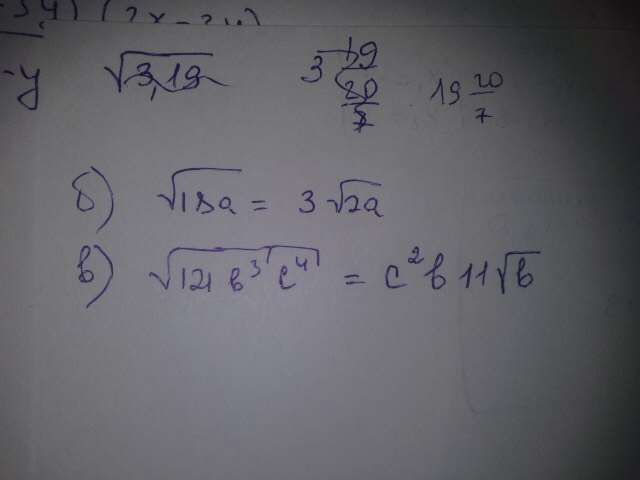 (2x-3y)
y √3,19 3 19/20/7 19 20/7
б) √18a = 3√2a
в) √121b³c⁴ = c²b11√b